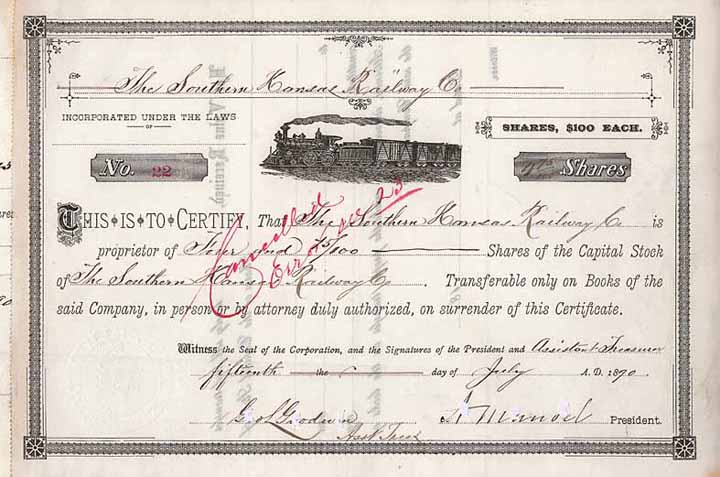 The Southern Kansas Railway Co
INCORPORATED UNDER THE LAWS
OF
SHARES, $100 EACH.
No. 22
Shares
THIS IS TO CERTIFY, That The Southern Kansas Railway Co is
proprietor of Four and 75/100 Shares of the Capital Stock
of The Southern Kansas Railway Co. Transferable only on Books of the
said Company, in person or by attorney duly authorized, on surrender of this Certificate.
Cancelled
Error no 23
Witness the Seal of the Corporation, and the Signatures of the President and Assistant Treasurer
fifteenth the day of July A. D. 1890.
Goodwin President.
Asst Treas